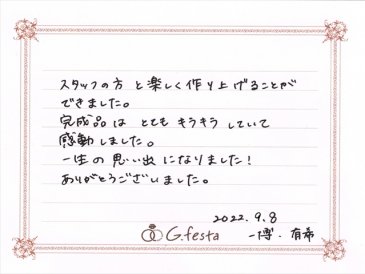 スタッフの方 と楽しく作り上げることが
できました。
完成品は とても キラキラ していて
感動しました。
一生の 思い出 になりました!
ありがとうございました。
2022.9.8
G.festa
一博・有希